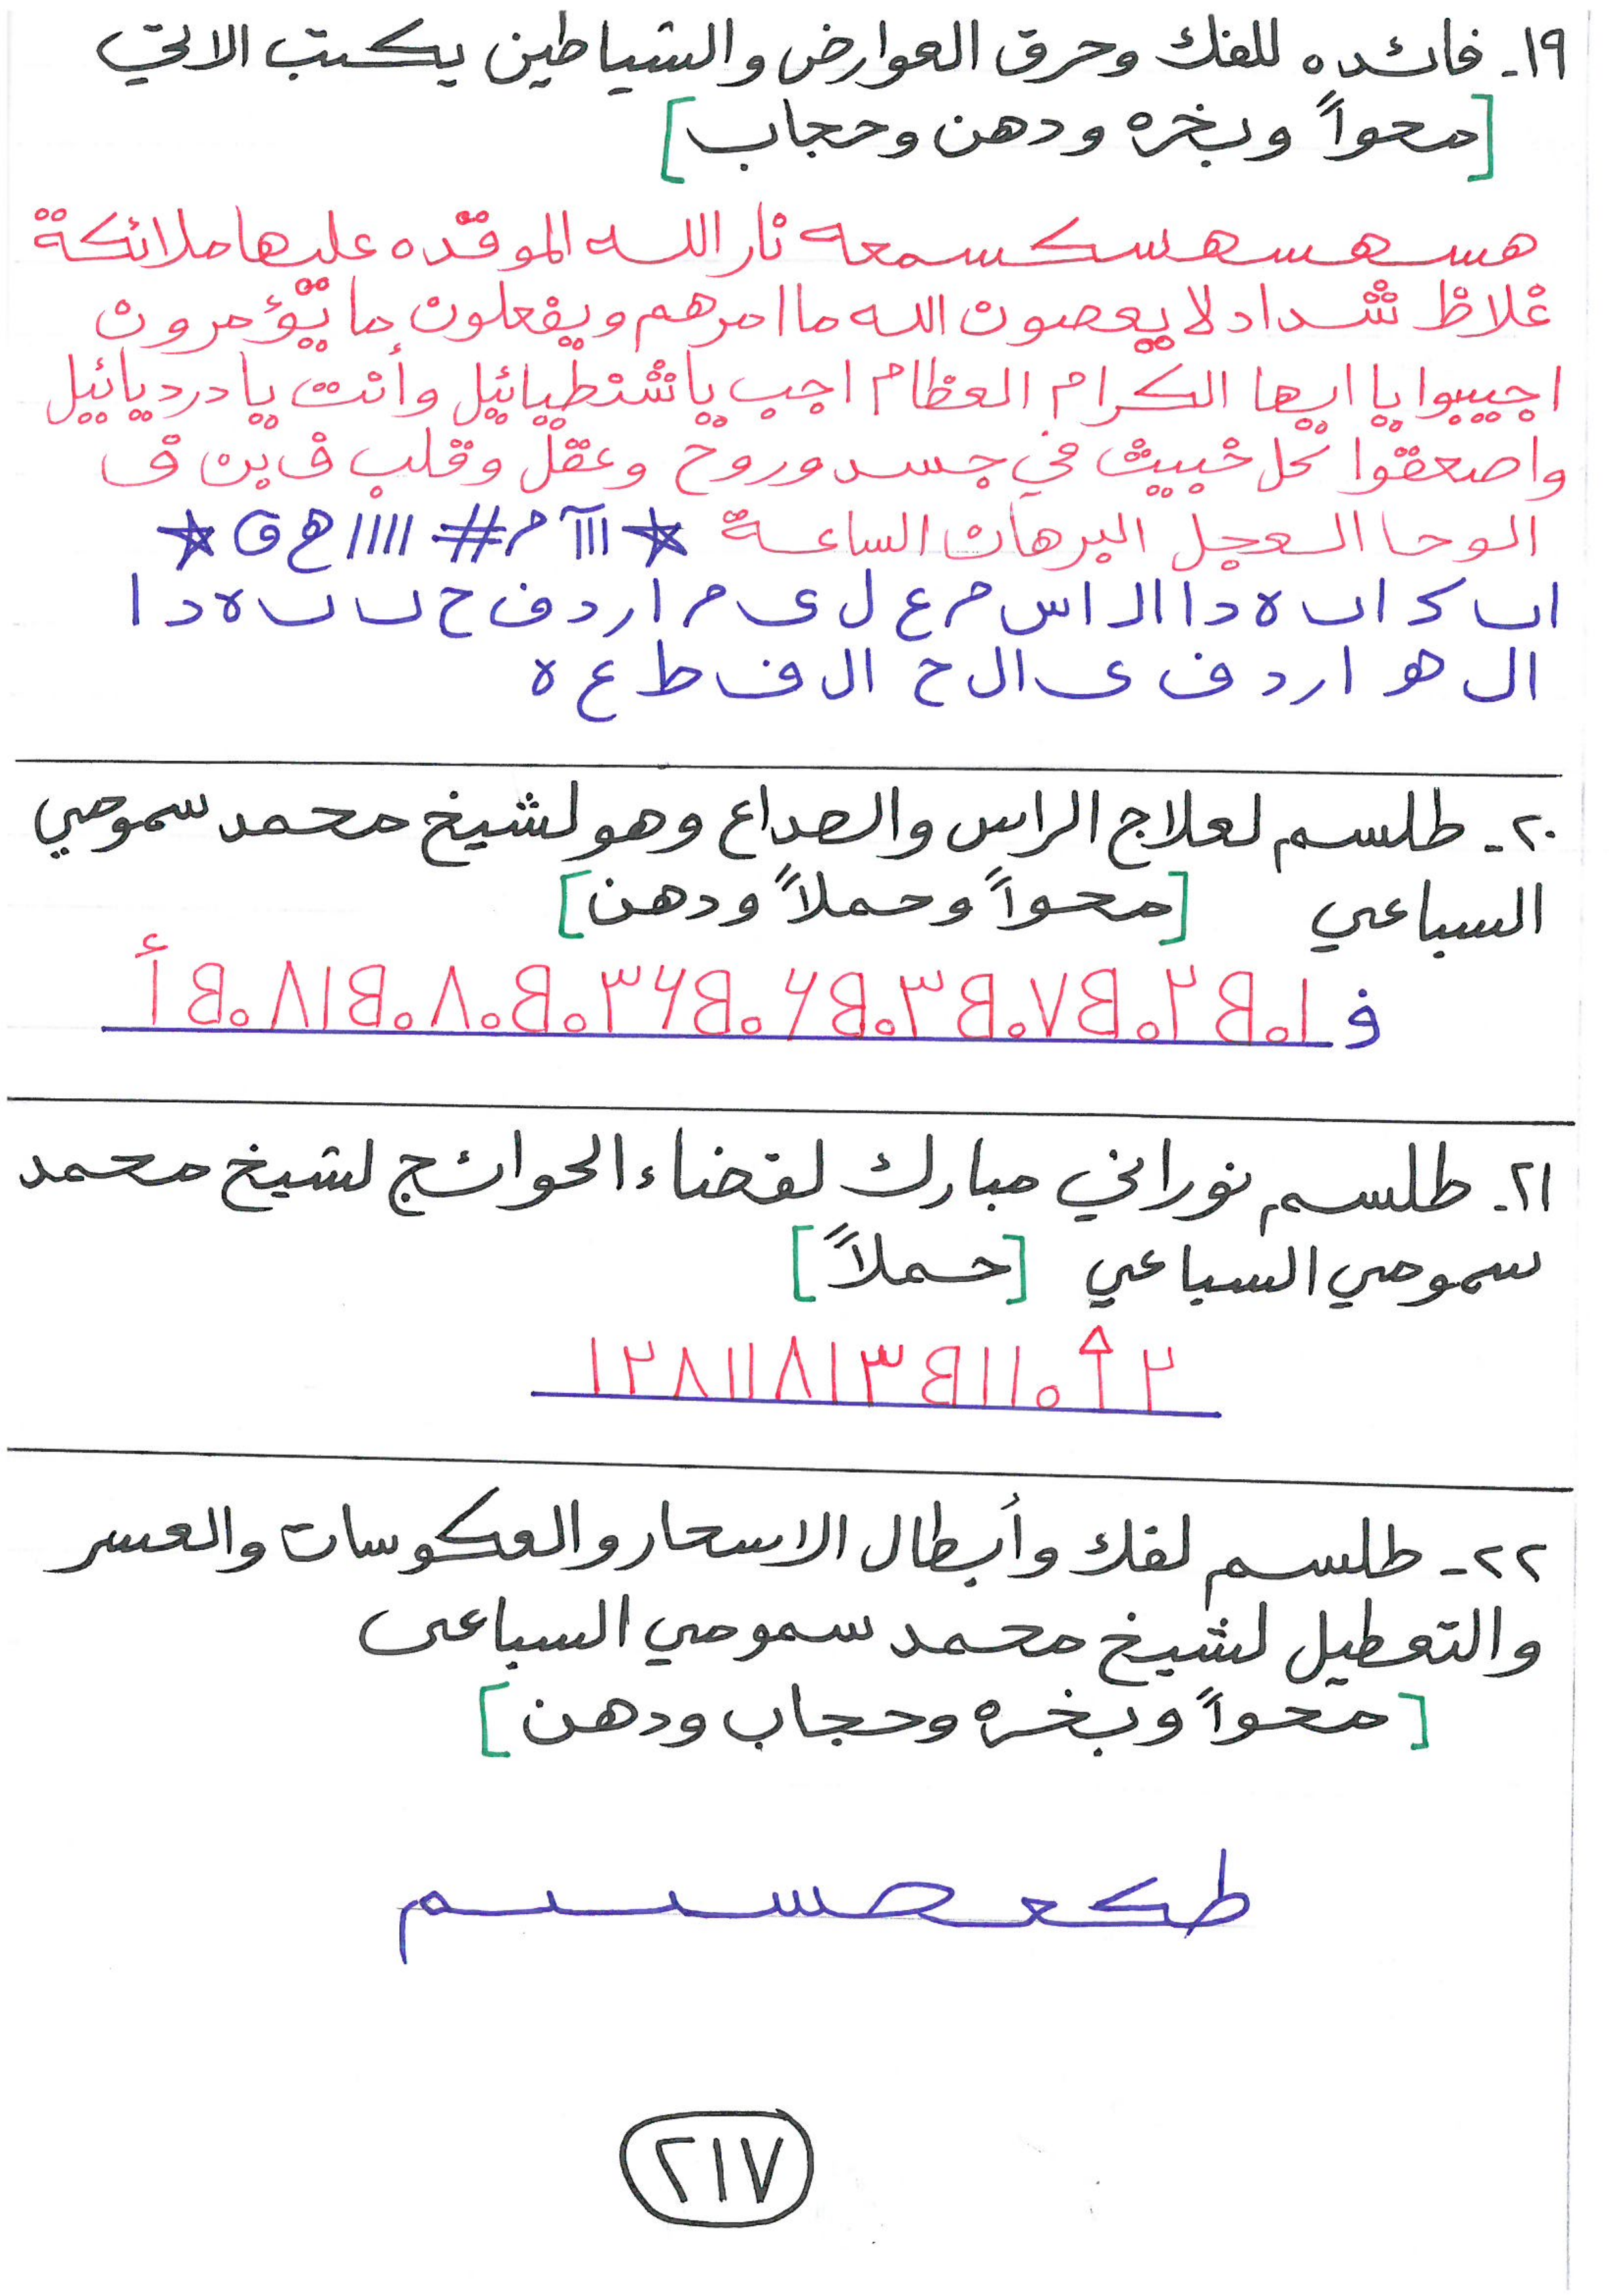 ١٩- فائده للفك وحرق العوارض والشياطين يكتب الاتي
[محواً وبخره ودهن وحجاب]
هسهسهسكسمعه نار الله الموقده عليها ملائكة
غلاظ شداد لا يعصون الله ما امرهم ويفعلون ما يؤمرون
اجيبوا يا ايها الكرام العظام اجب يا شنطيائيل وأنت يا درديائيل
واصعقوا كل خبيث في جسد وروح وعقل وقلب ف بن ف
الوحا العجل البرهان الساعة ★ ااا م # اااا هج ق ★
ال هو ا ر د ف ى ال ح ال ف ط ع ه
٢٠- طلسم لعلاج الراس والصداع وهو لشيخ محمد سموحي
السباعي [محواً وحملاً ودهن]
٢١- طلسم نوراني مبارك لقضاء الحوائج لشيخ محمد
سموحي السباعي [حملاً]
٢٢- طلسم لفك وأبطال الاسحار والعكوسات والعسر
والتعطيل لشيخ محمد سموحي السباعى
[محواً وبخره وحجاب ودهن]
طكعصسم
٢١٧